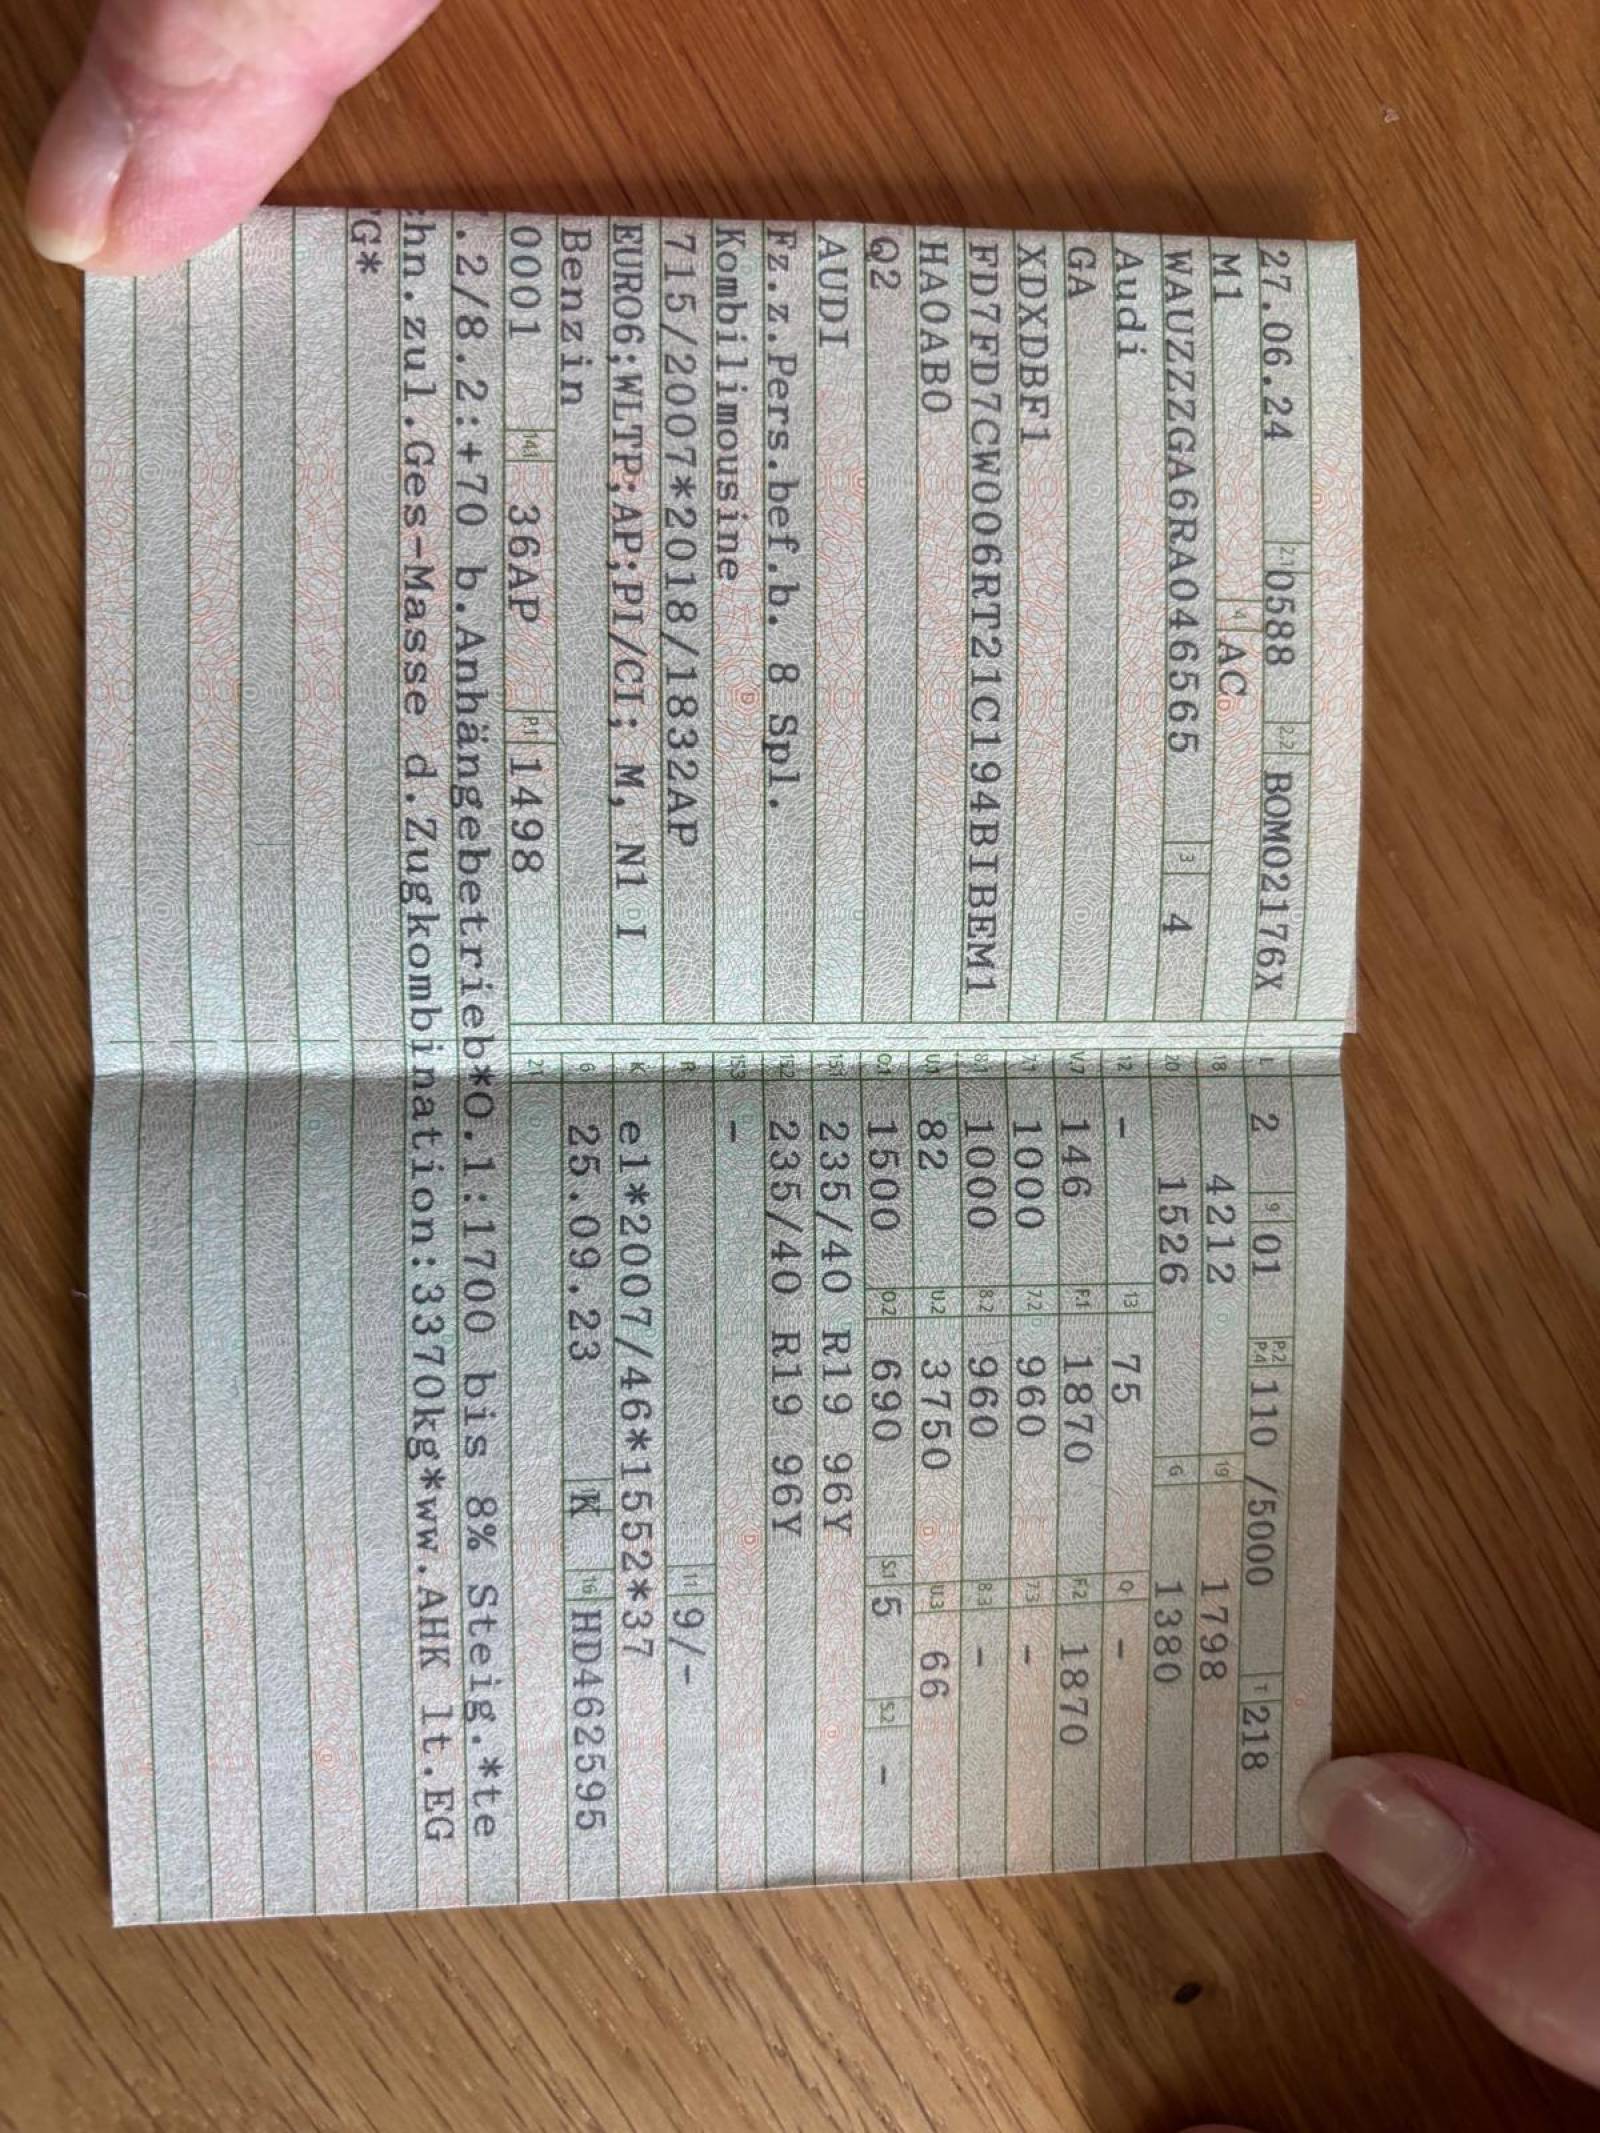 27.06.24 2.1 0588 2.2 BOM02176X
M1 4 AC
WAUZZZGA6RA046565 3 4
Audi
GA
XDXDBF1
FD7FD7CW006RT21C194BIBEM1
HA0AB0
Q2
AUDI
Fz.z.Pers.bef.b. 8 Spl.
Kombilimousine
715/2007*2018/1832AP
EURO6;WLTP;AP;PI/CI; M, N1 I
Benzin
0001 14.1 36AP P.1 1498
L 2 9 01 P.2 P.4 110 /5000 T 218
18 4212 19 1798
20 1526 G 1380
12 - 13 75 Q -
V.7 146 F.1 1870 F.2 1870
7.1 1000 7.2 960 7.3 -
8.1 1000 8.2 960 8.3 -
U.1 82 U.2 3750 U.3 66
O.1 1500 O.2 690 S.1 5 S.2 -
15.1 235/40 R19 96Y
15.2 235/40 R19 96Y
15.3 -
R 11 9/-
K e1*2007/46*1552*37
6 25.09.23 K 16 HD462595
21
.2/8.2:+70 b.Anhängebetrieb*O.1:1700 bis 8% Steig.*te
hn.zul.Ges-Masse d.Zugkombination:3370kg*ww.AHK lt.EG
G*